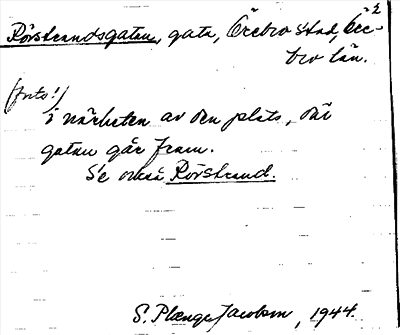 Rörstrandsgatan, gata, Örebro stad, Öre-
bro län.
(forts!)
i närheten av den plats, där
gatan går fram.
Se också Rörstrand.
S. Plænge Jacobson, 1944.